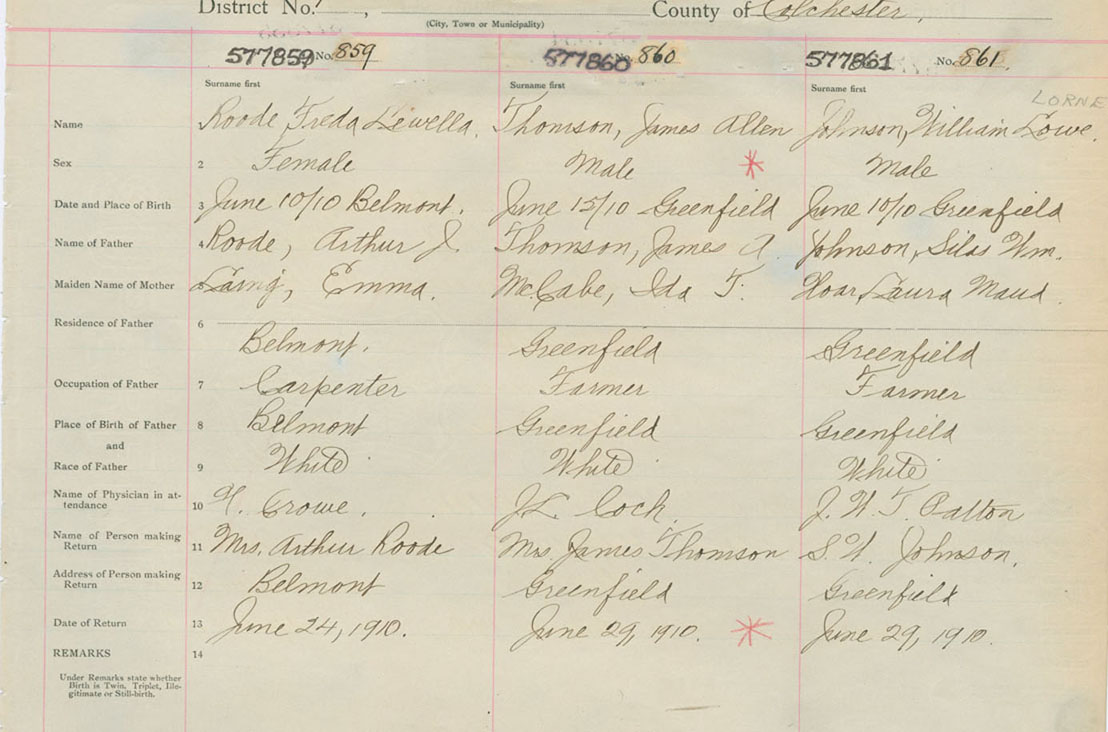 District No. , County of Colchester.
(City, Town or Municipality)
577859 No. 859 577860 No. 860 577861 No. 861.
Surname first Surname first Surname first LORNE
Name Roode Freda Lewella. Thomson, James Allen Johnson, William Lowe.
Sex 2 Female Male * Male
Date and Place of Birth 3 June 10/10 Belmont. June 15/10 Greenfield June 10/10 Greenfield
Name of Father 4 Roode, Arthur J. Thomson, James A Johnson, Silas Wm.
Maiden Name of Mother Laing, Emma. McCabe, Ida T. Hoar, Laura Maud.
Residence of Father 6
Belmont. Greenfield Greenfield
Occupation of Father 7 Carpenter Farmer Farmer
Place of Birth of Father 8 Belmont Greenfield Greenfield
and
Race of Father 9 White White White
Name of Physician in at-
tendance 10 H. Crowe. J L Cock J. W. T. Patton
Name of Person making
Return 11 Mrs. Arthur Roode Mrs James Thomson S. W. Johnson.
Address of Person making
Return 12 Belmont Greenfield Greenfield
Date of Return 13 June 24, 1910. June 29, 1910. * June 29, 1910.
REMARKS 14
Under Remarks state whether
Birth is Twin, Triplet, Ille-
gitimate or Still-birth.